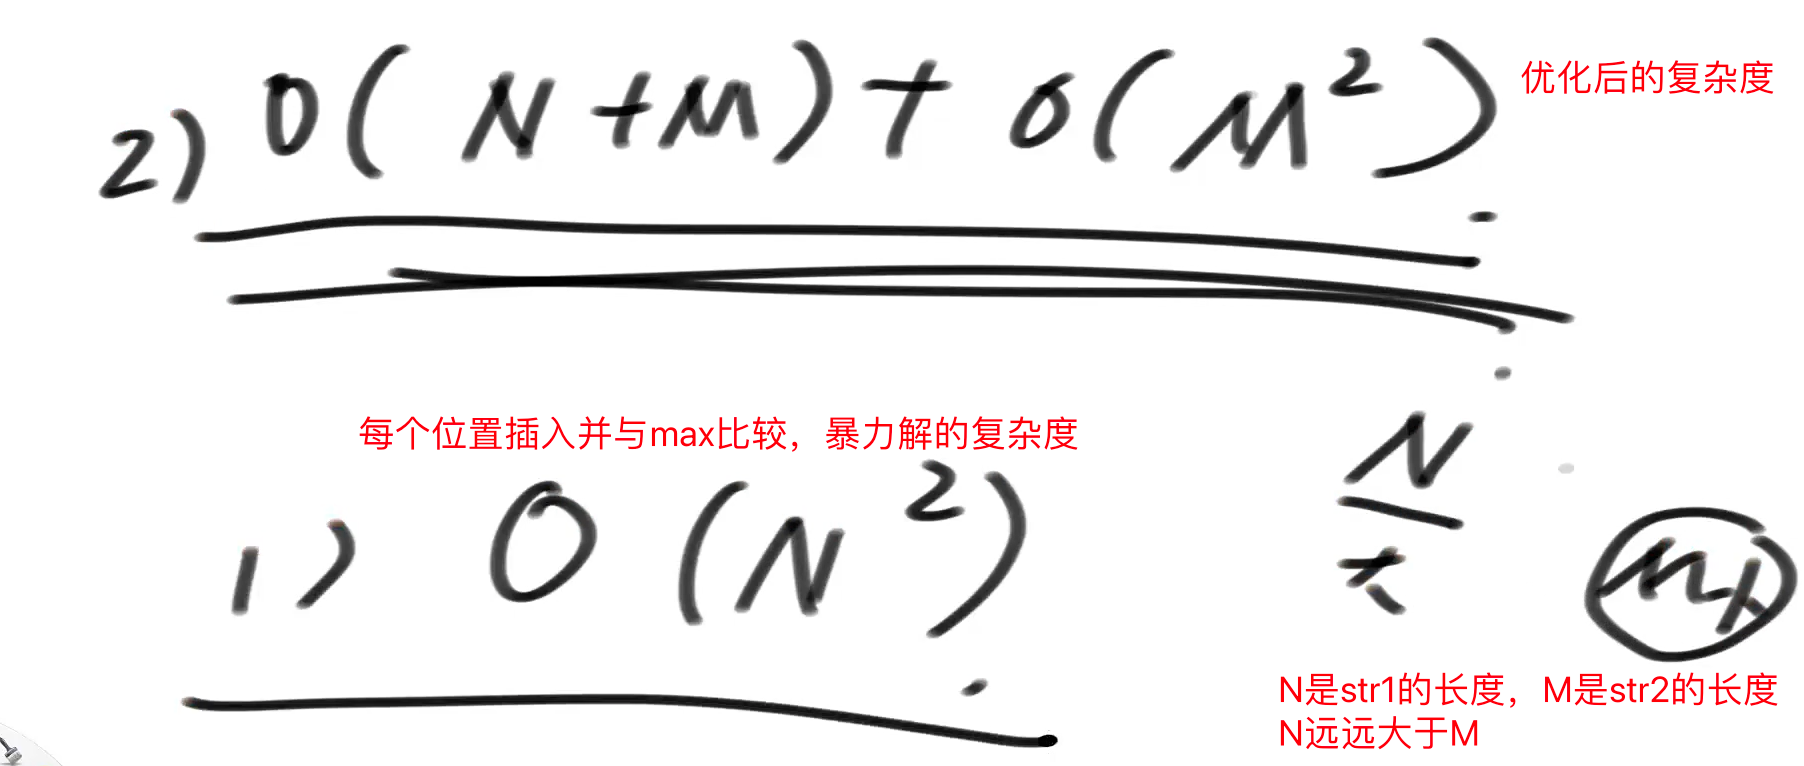 2) O(N+M)+O(M²)
优化后的复杂度
每个位置插入并与max比较，暴力解的复杂度
1) O(N²)
N
M
N是str1的长度，M是str2的长度
N远远大于M